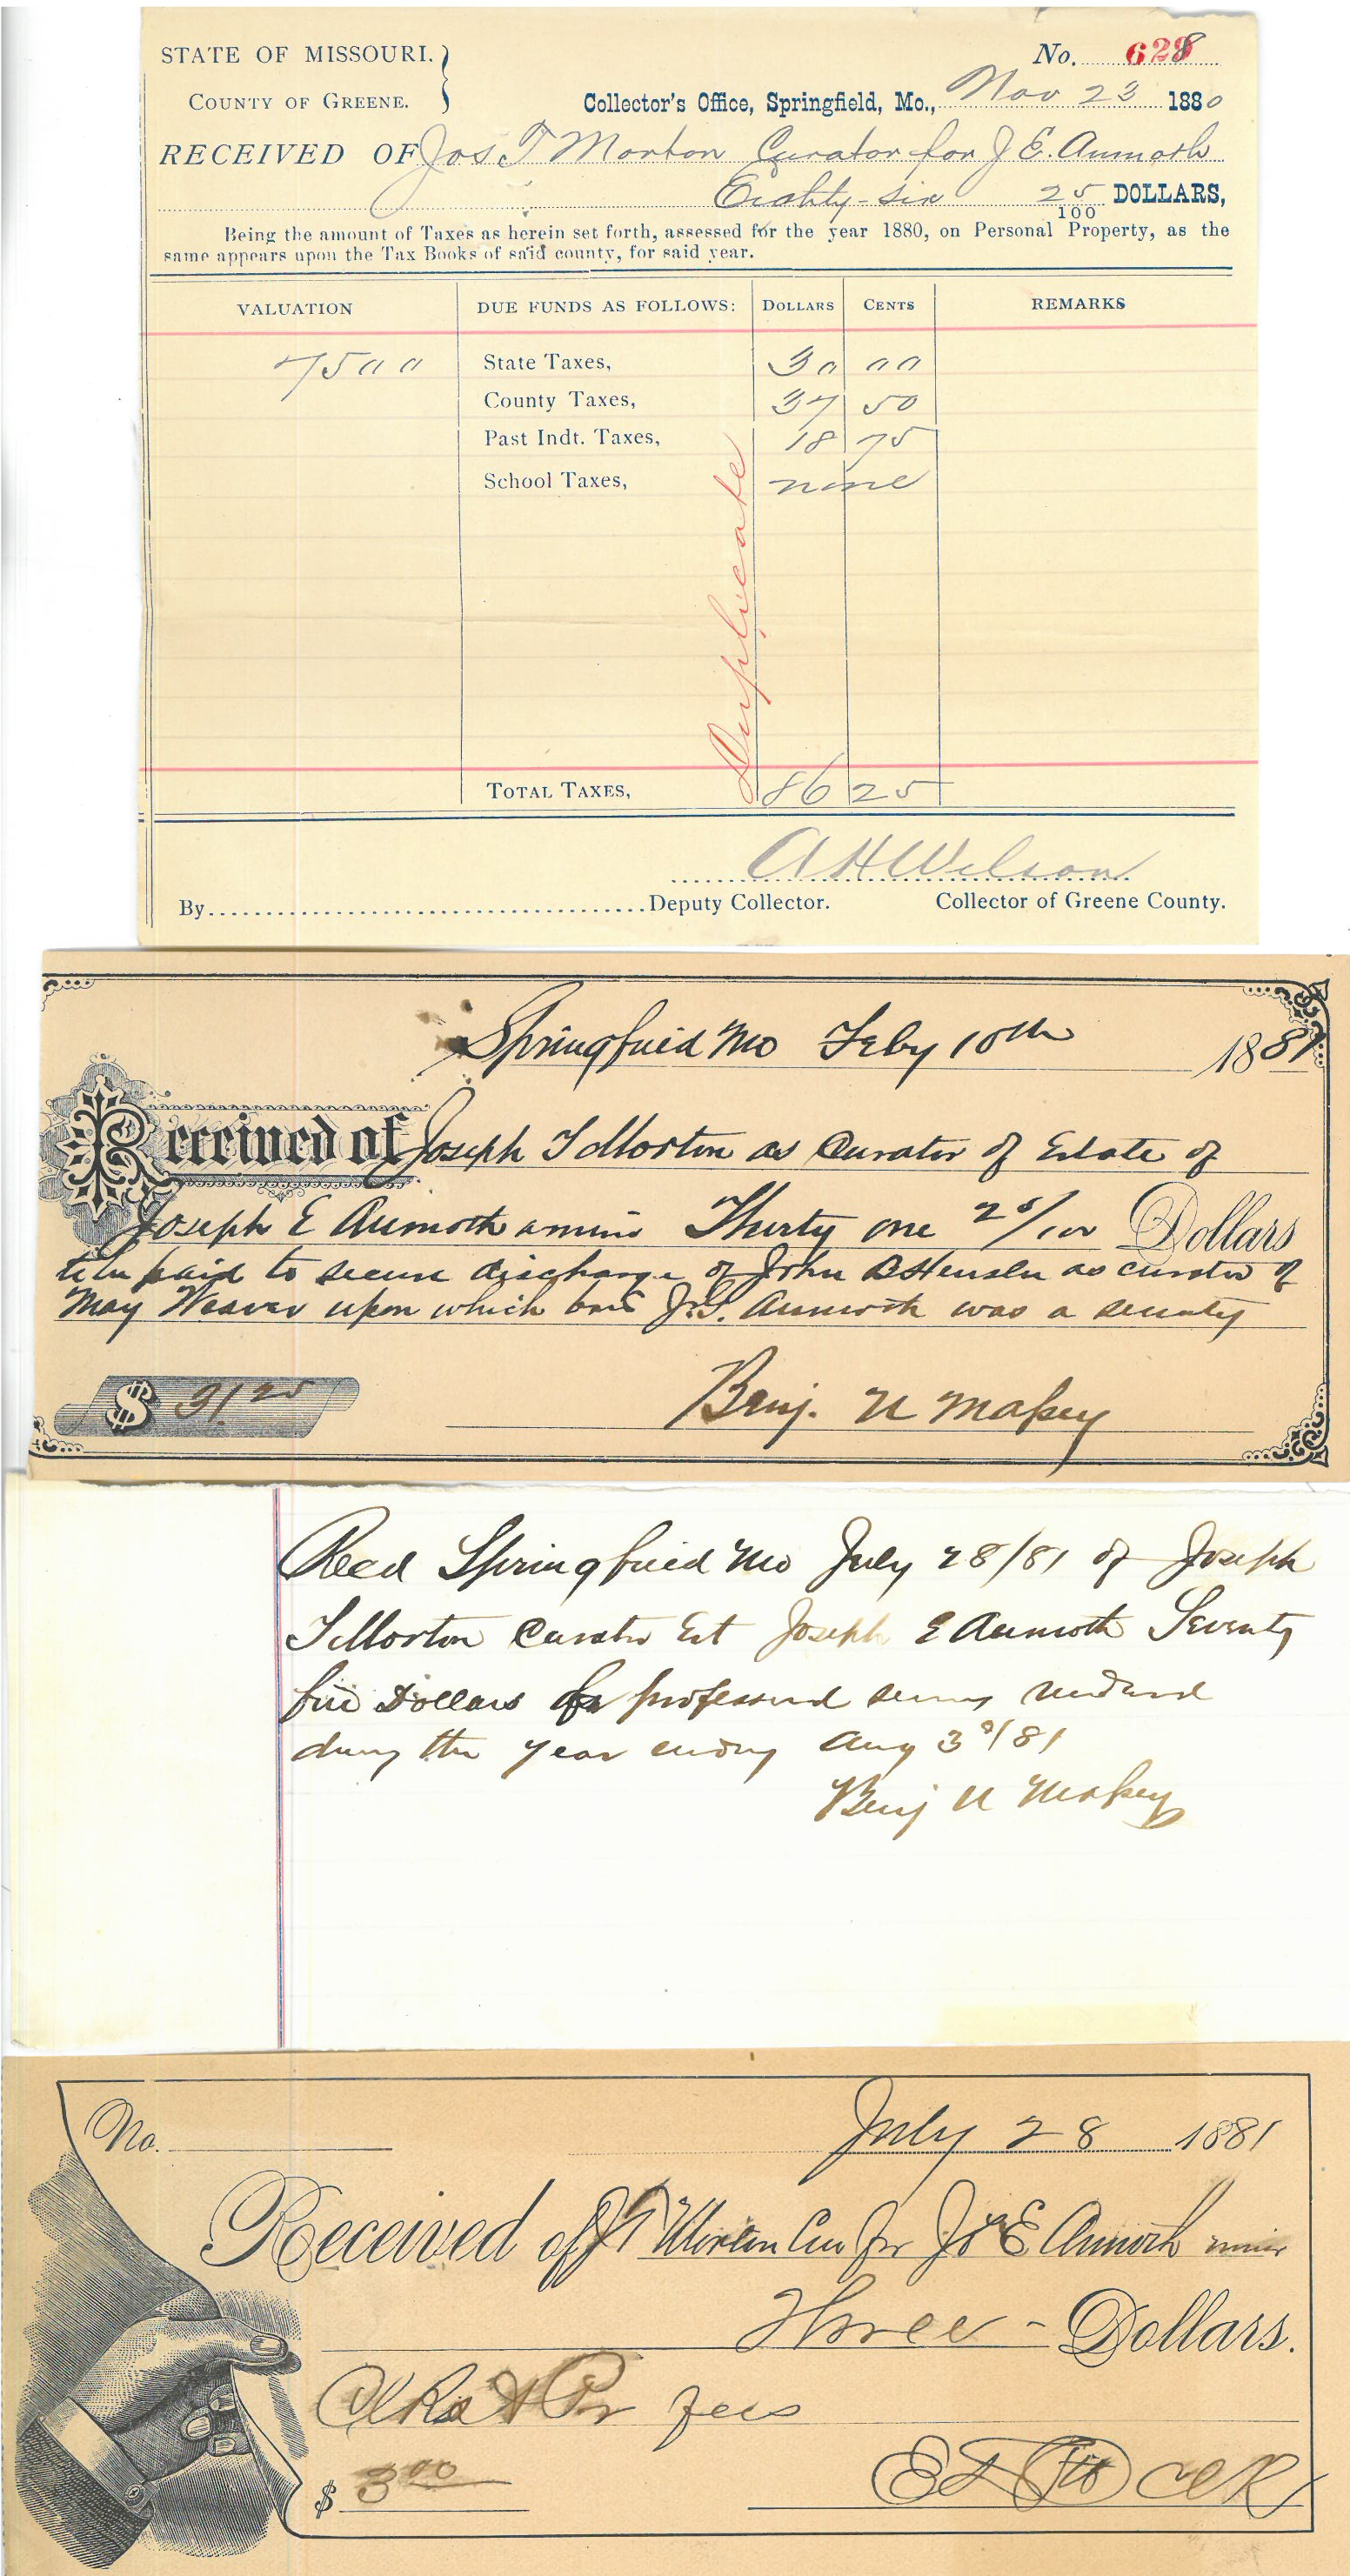 STATE OF MISSOURI. } No. 628
COUNTY OF GREENE. Collector's Office, Springfield, Mo., Nov 23 1880
RECEIVED OF Jos T Morton Curator for J E. Aumoth
Eighty-six 25/100 DOLLARS,
Being the amount of Taxes as herein set forth, assessed for the year 1880, on Personal Property, as the
same appears upon the Tax Books of said county, for said year.
VALUATION DUE FUNDS AS FOLLOWS: DOLLARS CENTS REMARKS
7500 State Taxes, 30 00
County Taxes, 37 50
Past Indt. Taxes, 18 75
School Taxes, none
Duplicate
TOTAL TAXES, 86 25
A H Wilson
By Deputy Collector. Collector of Greene County.
Springfield Mo Feby 10th 1881
Received of Joseph T Morton as Curator of Estate of
Joseph E Aumoth a minor Thirty one 25/100 Dollars
to be paid to secure discharge of John as curator of
May Weaver upon which bond J.S. Aumoth was a security
$ 31.25 Benj. U Massey
Recd Springfield Mo July 28/81 of Joseph
T Morton Curator Est Joseph E Aumoth Seventy
five Dollars for professional services rendered
during the year ending Aug 3d/81
Benj U Massey
No. July 28 1881
Received of J T Morton Cur for Jos E Aumoth minor
Three - Dollars.
Clks & Pr fees
$ 3.00 Clk